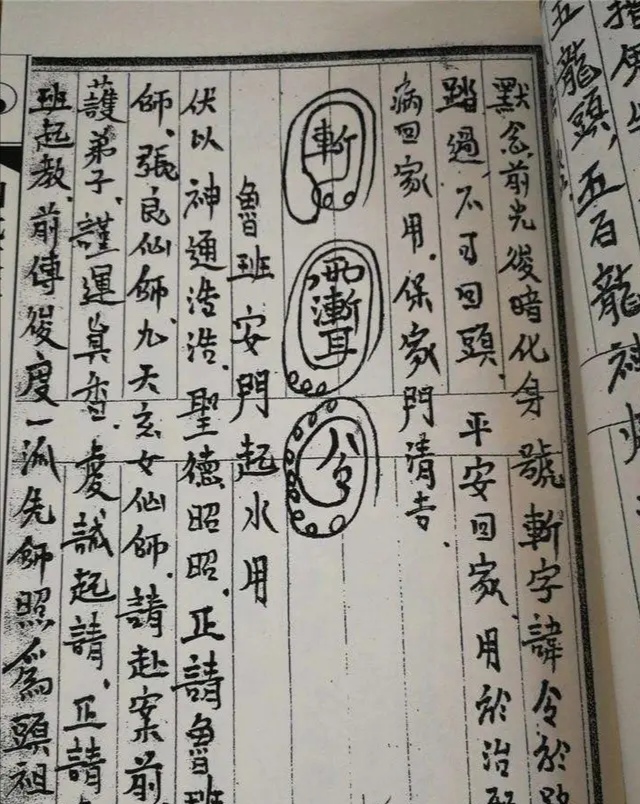 撘
五龍頭五百龍神
默念前光後暗化身號斬字諱令於
踏過不可回頭平安回家用於治
病回家用保家門清吉
斬
漸耳
八令
魯班安門起水用
伏以神通浩浩聖德昭昭正請魯班
師張良仙師九天玄女仙師請赴案前
護弟子謹運真香虔誠起請正請
班起教前傳後度一派先師照爲頭祖